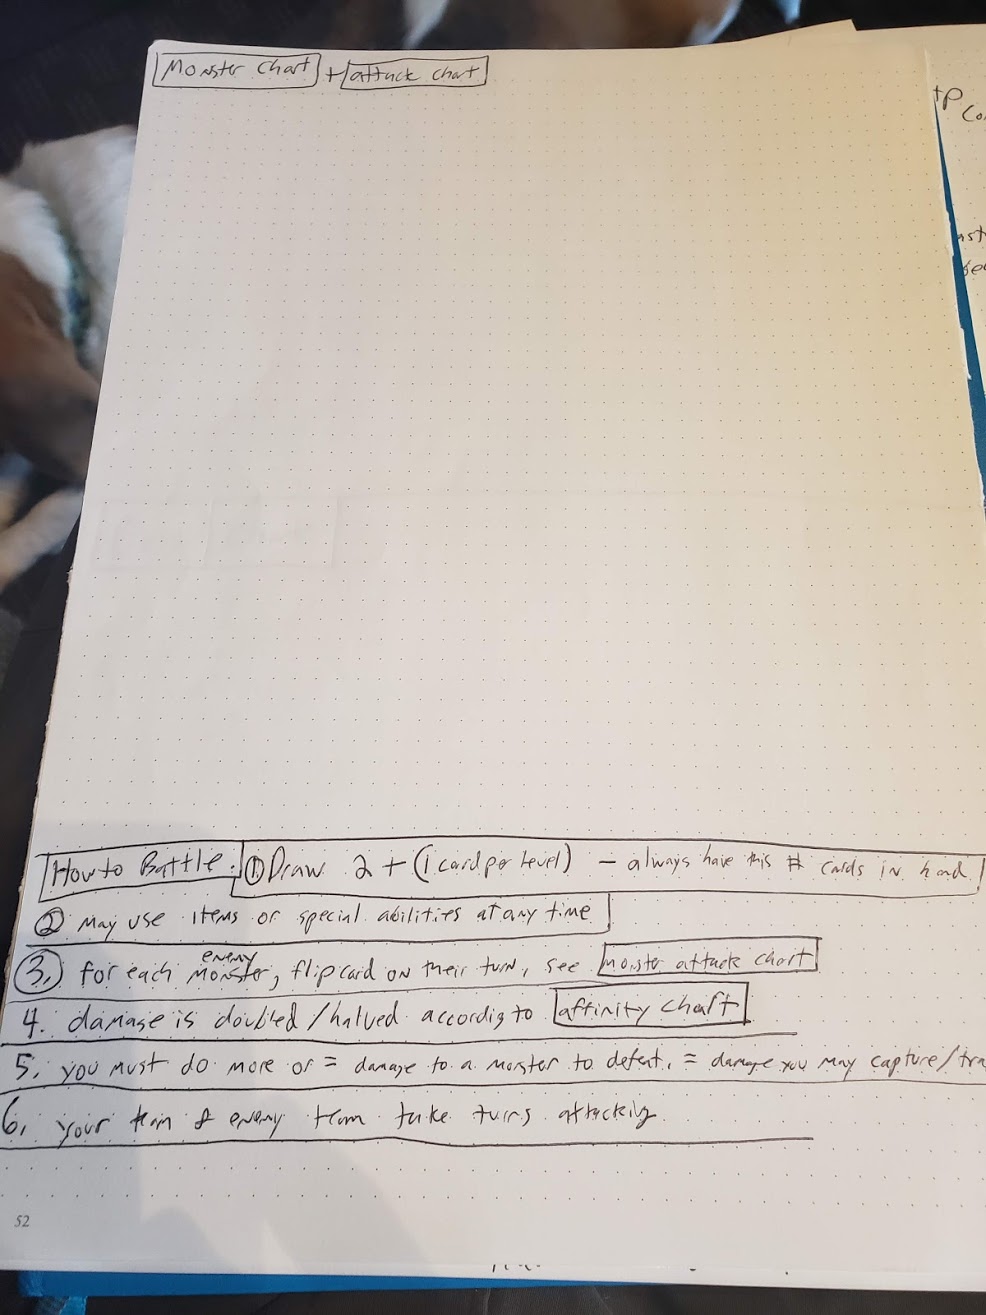 Monster Chart + attack chart
+P
How to Battle: ① Draw 2 + (1 card per level) - always have this # cards in hand
② may use items or special abilities at any time
enemy
3.) for each monster, flip card on their turn, see monster attack chart
4. damage is doubled/halved accordig to affinity chart
5. you must do more or = damage to a monster to defeat. = damage you may capture/tra
6. your team & enemy team take turns attacking
52